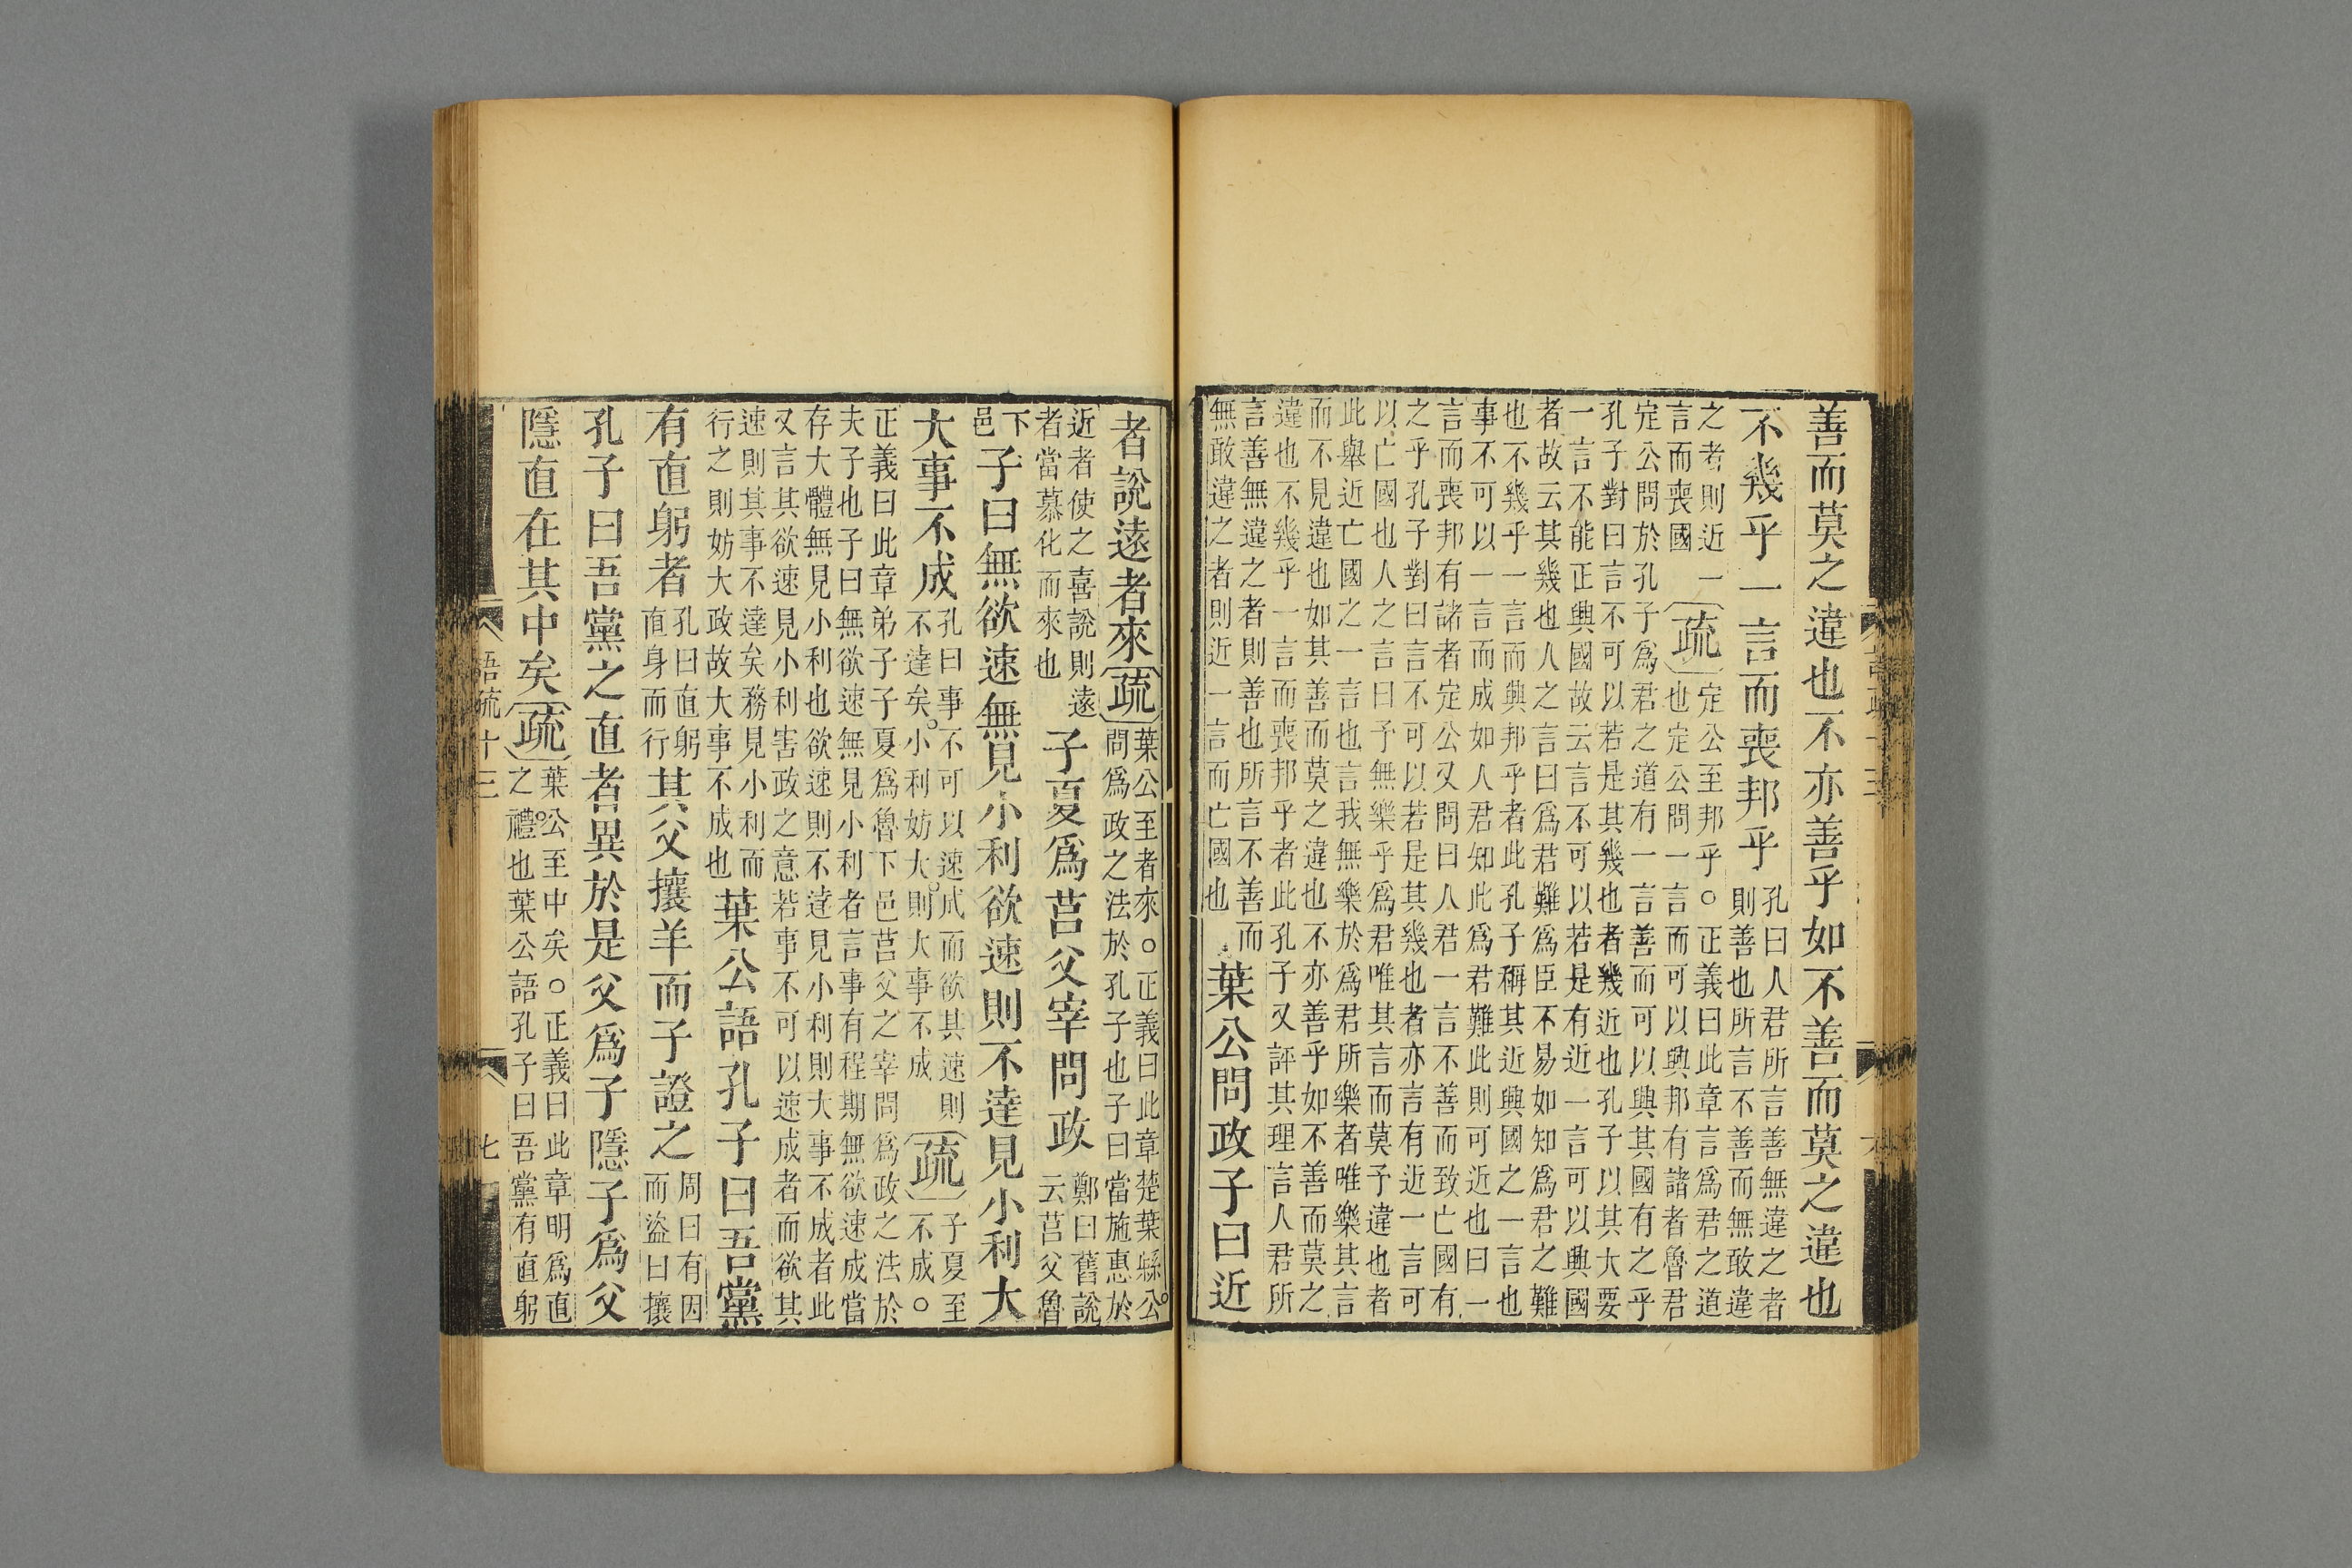 善而莫之違也不亦善乎如不善而莫之違也
不幾乎一言而喪邦乎
孔曰人君所言善無違之者
則善也所言不善而無敢違
之者則近一
言而喪國
疏
定公至邦乎○正義曰此章言爲君之道
也定公問一言而可以興邦有諸者魯君
定公問於孔子爲君之道有一言善而可以興其國有之乎
孔子對曰言不可以若是其幾也者幾近也孔子以其大要
一言不能正興國故云言不可以若是有近一言可以興國
者故云其幾也人之言曰爲君難爲臣不易如知爲君之難
也不幾乎一言而興邦乎者此孔子稱其近興國之一言也
事不可以一言而成如人君知此爲君難此則可近也曰一
言而喪邦有諸者定公又問曰人君一言不善而致亡國有
之乎孔子對曰言不可以若是其幾也者亦言有近一言可
以亡國也人之言曰予無樂乎爲君唯其言而莫予違也者
此舉近亡國之一言也言我無樂於爲君所樂者唯樂其言
而不見違也如其善而莫之違也不亦善乎如不善而莫之
違也不幾乎一言而喪邦乎者此孔子又評其理言人君所
言善無違之者則善也所言不善而
無敢違之者則近一言而亡國也
葉公問政子曰近
者說遠者來
疏
葉公至者來○正義曰此章楚葉縣公
問爲政之法於孔子也子曰當施惠於
近者使之喜說則遠
者當慕化而來也
子夏爲莒父宰問政
鄭曰舊說
云莒父魯
下
邑
子曰無欲速無見小利欲速則不達見小利大
大事不成
孔曰事不可以速成而欲其速則
不達矣小利妨大則大事不成
疏
子夏至
不成○
正義曰此章弟子子夏爲魯下邑莒父之宰問爲政之法於
夫子也子曰無欲速無見小利者言事有程期無欲速成當
存大體無見小利也欲速則不達見小利則大事不成者此
又言其欲速見小利害政之意若事不可以速成者而欲其
速則其事不達矣務見小利而
行之則妨大政故大事不成也
葉公語孔子曰吾黨
有直躬者
孔曰直躬
直身而行
其父攘羊而子證之
周曰有因
而盜曰攘
孔子曰吾黨之直者異於是父爲子隱子爲父
隱直在其中矣
疏
葉公至中矣○正義曰此章明爲直
之禮也葉公語孔子曰吾黨有直躬
語疏十三
七